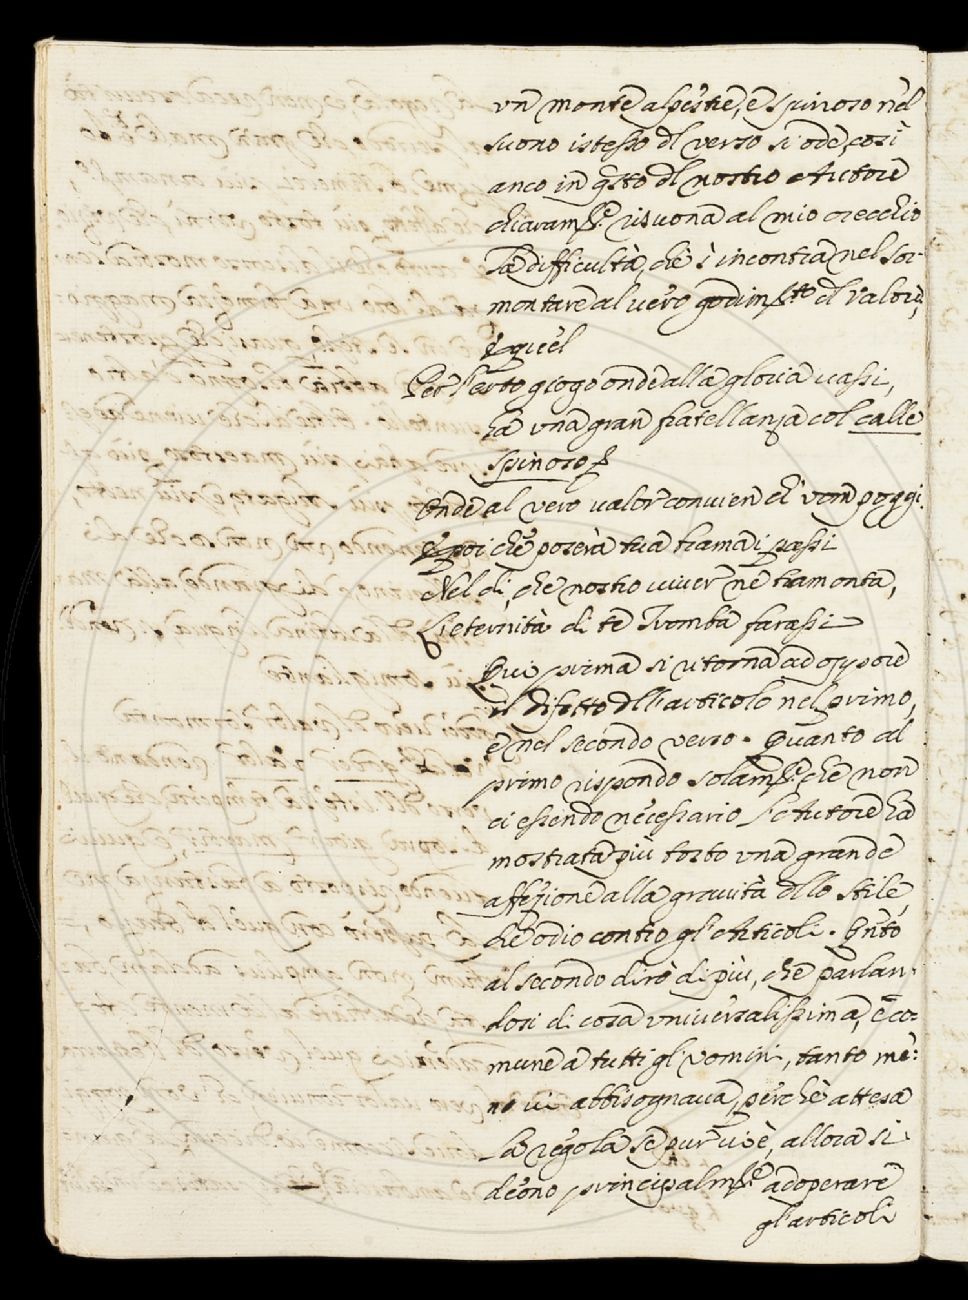 vn monte alpestre, e spinoso nel
suono istesso dl verso si ode, così
anco in qsto dl nostro Autore
chiaramte. risuona al mio orecchio
la difficultà, che s'incontra nel sor-
montare al vero godimto dl valore,
e quel
Per l'erto giogo onde alla gloria vassi,
ha vna gran fratellanza col calle
spinoso
Onde al vero valor convien ch'vom poggi.
E poi che poserà tua trama i passi
Nel dì, che nostro viver ne tramonta,
L'eternità di te Tromba farassi
Qui prima si ritorna ad opporre
il difetto dll'articolo nel primo,
e nel secondo verso. Quanto al
primo rispondo solamte. che non
ci essendo necessario l'Autore ha
mostrata più tosto vna grande
affezione alla gravità dllo stile,
che odio contro gl'Articoli. Qnto
al secondo dirò di più, che parlan-
dosi di cosa vniversalissima, e co-
mune a tutti gl'vomini, tanto me-
no vi abbisognava, perchè attesa
la regola se pur vi è, allora si
deono principalmte adoperare
gl'articoli